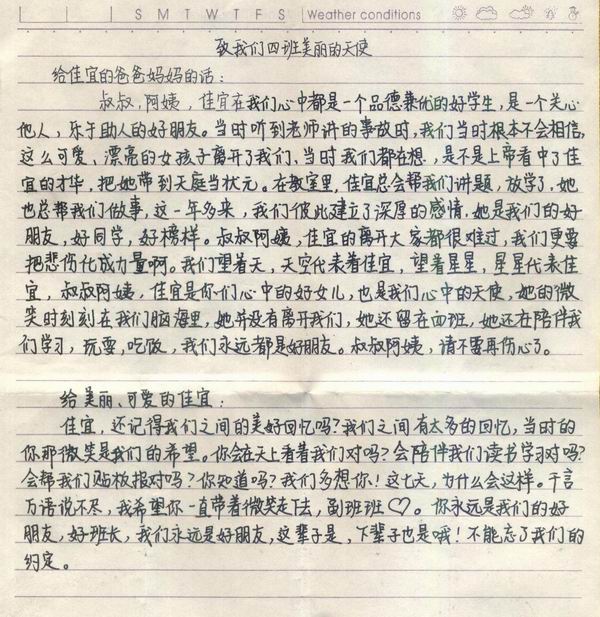 S M T W T F S Weather conditions
致我们四班美丽的天使
给佳宜的爸爸妈妈的话：
叔叔，阿姨，佳宜在我们心中都是一个品德兼优的好学生，是一个关心
他人，乐于助人的好朋友。当时听到老师讲的事故时，我们当时根本不会相信，
这么可爱、漂亮的女孩子离开了我们、当时我们都在想，是不是上帝看中了佳
宜的才华，把她带到天庭当状元。在教室里，佳宜总会帮我们讲题，放学了，她
也总帮我们做事，这一年多来，我们彼此建立了深厚的感情，她是我们的好
朋友，好同学，好榜样。叔叔阿姨，佳宜的离开大家都很难过，我们更要
把悲伤化成力量啊。我们望着天，天空代表着佳宜，望着星星，星星代表佳
宜，叔叔阿姨，佳宜是你们心中的好女儿，也是我们心中的天使，她的微
笑时刻刻在我们脑海里，她并没有离开我们，她还留在四班，她还在陪伴我
们学习，玩耍，吃饭，我们永远都是好朋友。叔叔阿姨，请不要再伤心了。
给美丽、可爱的佳宜：
佳宜，还记得我们之间的美好回忆吗？我们之间有太多的回忆，当时的
你那微笑是我们的希望。你会在天上看着我们对吗？会陪伴我们读书学习对吗？
会帮我们贴板报对吗？你知道吗？我们多想你！这七天，为什么会这样。千言
万语说不尽，我希望你一直带着微笑走下去，副班班♡。你永远是我们的好
朋友，好班长，我们永远是好朋友，这辈子是，下辈子也是哦！不能忘了我们的
约定。